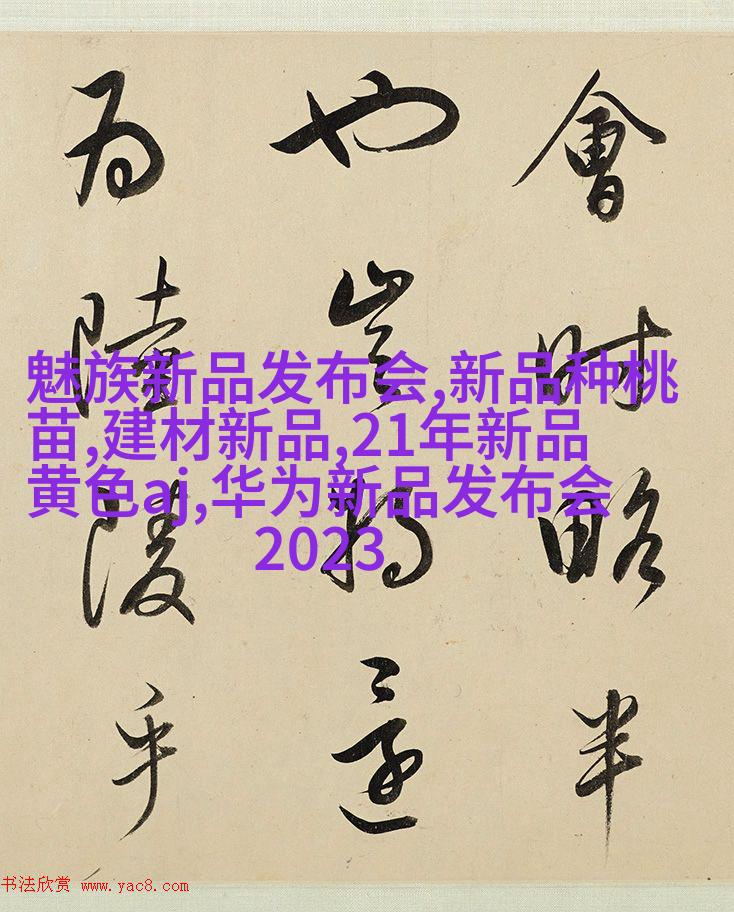 會時略半
也豈將還
為陸陵乎
魅族新品发布会,新品种桃
苗,建材新品,21年新品
黄色aj,华为新品发布会
2023
书法欣赏 www.yac8.com